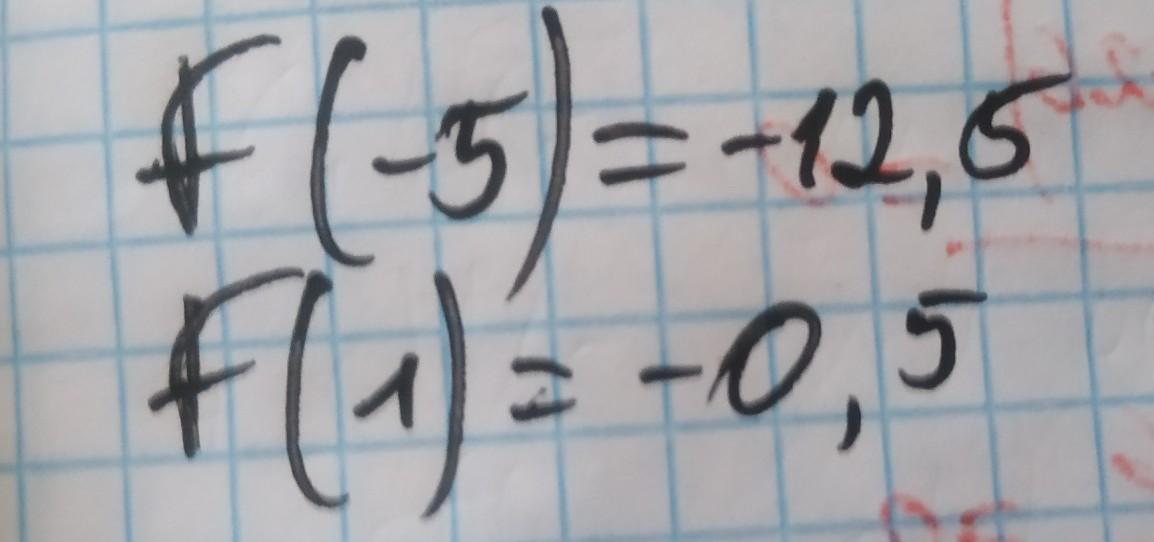 F(-5)=-12,5
F(1)=-0,5